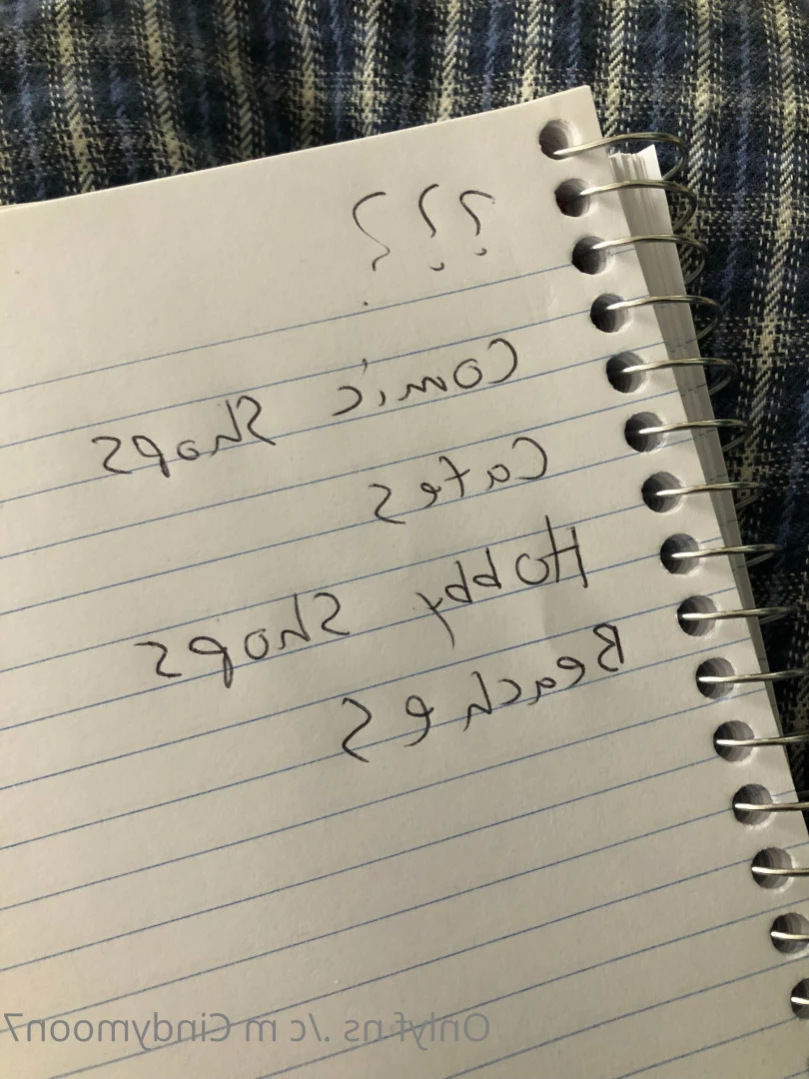 ???
Comic Shops
Cafes
Hobby Shops
Beaches
Onlyf ns ./c m Cindymoon7